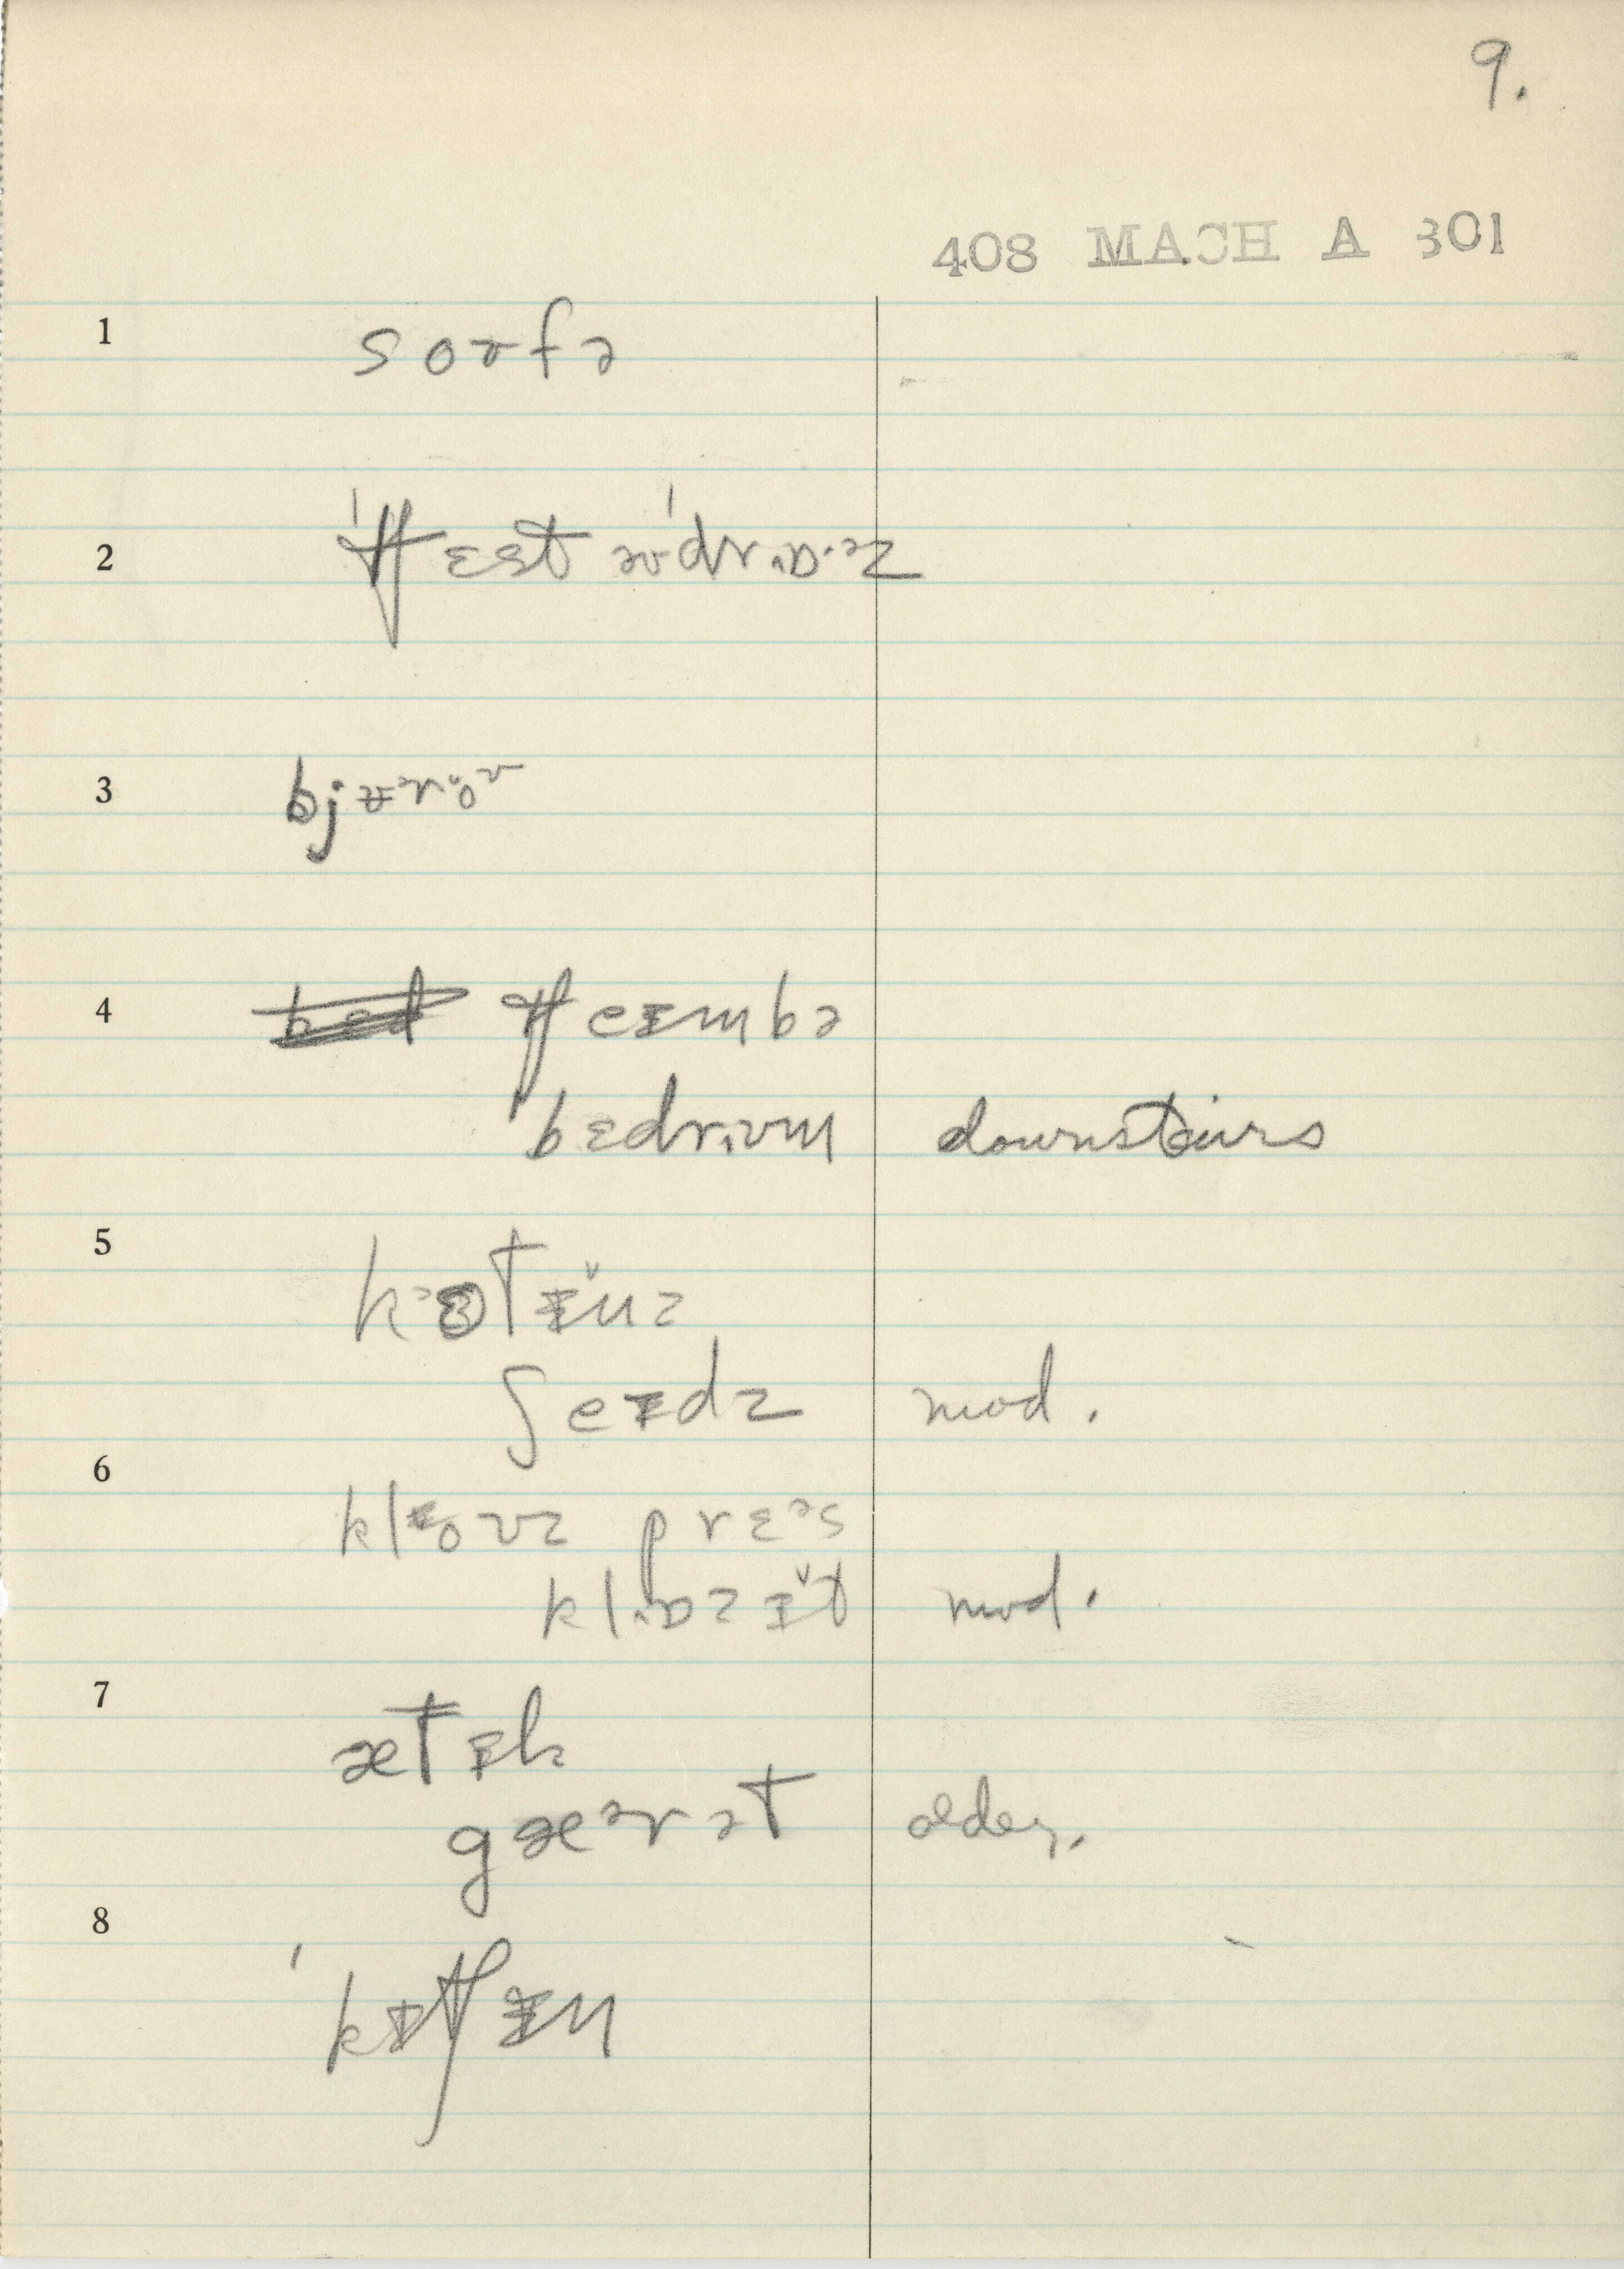 9.
408 MACH A 301
1 soɤfə
2 ˈtʃɛst əvˈdrɒ·əz
3 bjʉɚroʊ
4 tʃeɪmbə
bɛdrʊm downstairs
5 kɜtɪ̆nz
ʃeɪdz mod.
6 kloʊz prɛəs
klɒzɪ̆t mod.
7 ætɪk
gæərət older.
8 ˈkɪtʃɪn